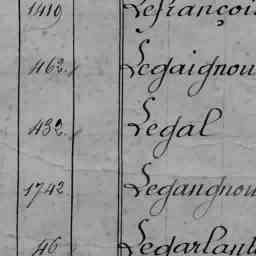 1419 Lefrançoi
462. Legaignou
432. Legal
1742. Legangnou
46 Legarlant